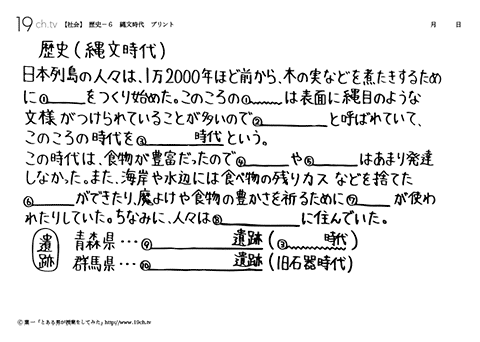 19ch.tv 【社会】 歴史−6 縄文時代 プリント 月 日
歴史(縄文時代)
日本列島の人々は、1万2000年ほど前から、木の実などを煮たきするため
に①______をつくり始めた。このころの①______は表面に縄目のような
文様がつけられていることが多いので②____________と呼ばれていて、
このころの時代を③______時代という。
この時代は、食物が豊富だったので④________や⑤______はあまり発達
しなかった。また、海岸や水辺には食べ物の残りカスなどを捨てた
⑥______ができたり、魔よけや食物の豊かさを祈るために⑦______が使わ
れたりしていた。ちなみに、人々は⑧____________に住んでいた。
遺跡 青森県…⑨____________遺跡(③______時代)
群馬県…⑩____________遺跡(旧石器時代)
©葉一「とある男が授業をしてみた」http://www.19ch.tv